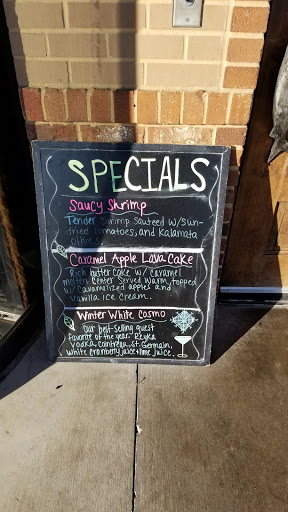 SPECIALS
Saucy Shrimp
Tender Shrimp Sauteed w/Sun-
dried tomatoes, and Kalamata
olives.
Caramel Apple Lava Cake
Rich butter cake w/ caramel
molten center served warm, topped
w/ caramelized apples and
vanilla ice cream.
Winter White Cosmo
Our best-selling guest
favorite of the year. Reyka
vodka, Cointreau, St. Germain,
white cranberry juice + lime juice.